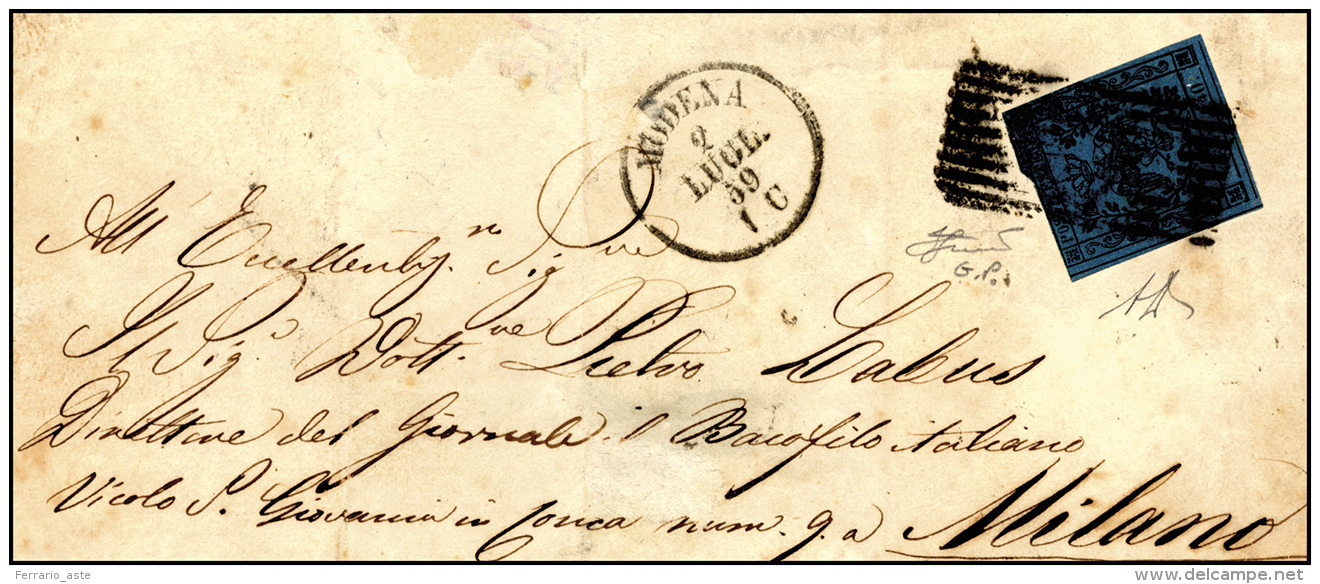 MODENA
2
LUGL.
59
1 C
G.P.
All' Eccellentis.mo Sig.re
Il Sig. Dott.re Pietro Labus
Direttore del Giornale il Bacofilo italiano
Vicolo S. Giovanni in Conca num. 9. a Milano
Ferrario_aste
delcampe.net